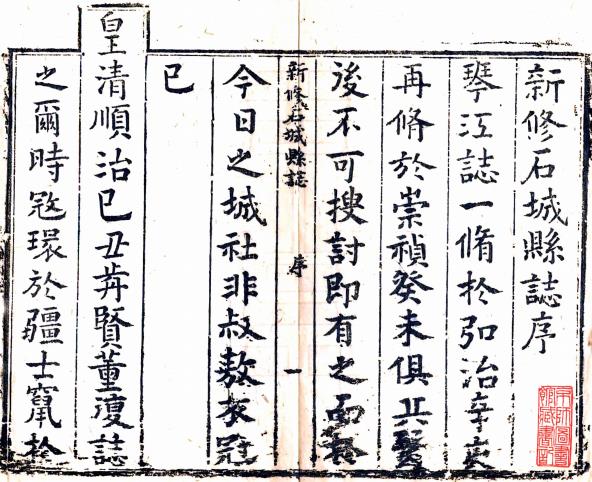 新修石城縣誌序
琴江誌一脩於弘治辛亥
再脩於崇禎癸未俱兵燹
後不可搜討即有之
新修石城縣誌 序 一
今日之城社非叔敖衣冠
已
皇清順治已丑歬賢董復誌
之爾時寇環於疆士竄於
京師圖書
館藏書記